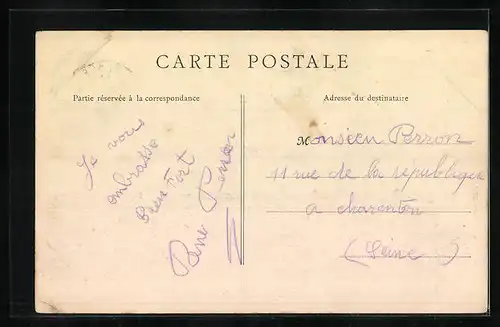 CARTE POSTALE
Partie réservée à la correspondance
Adresse du destinataire
Je vous
embrasse
bien fort
René
Monsieur Perron
11 rue de la république
a charenton
(Seine)